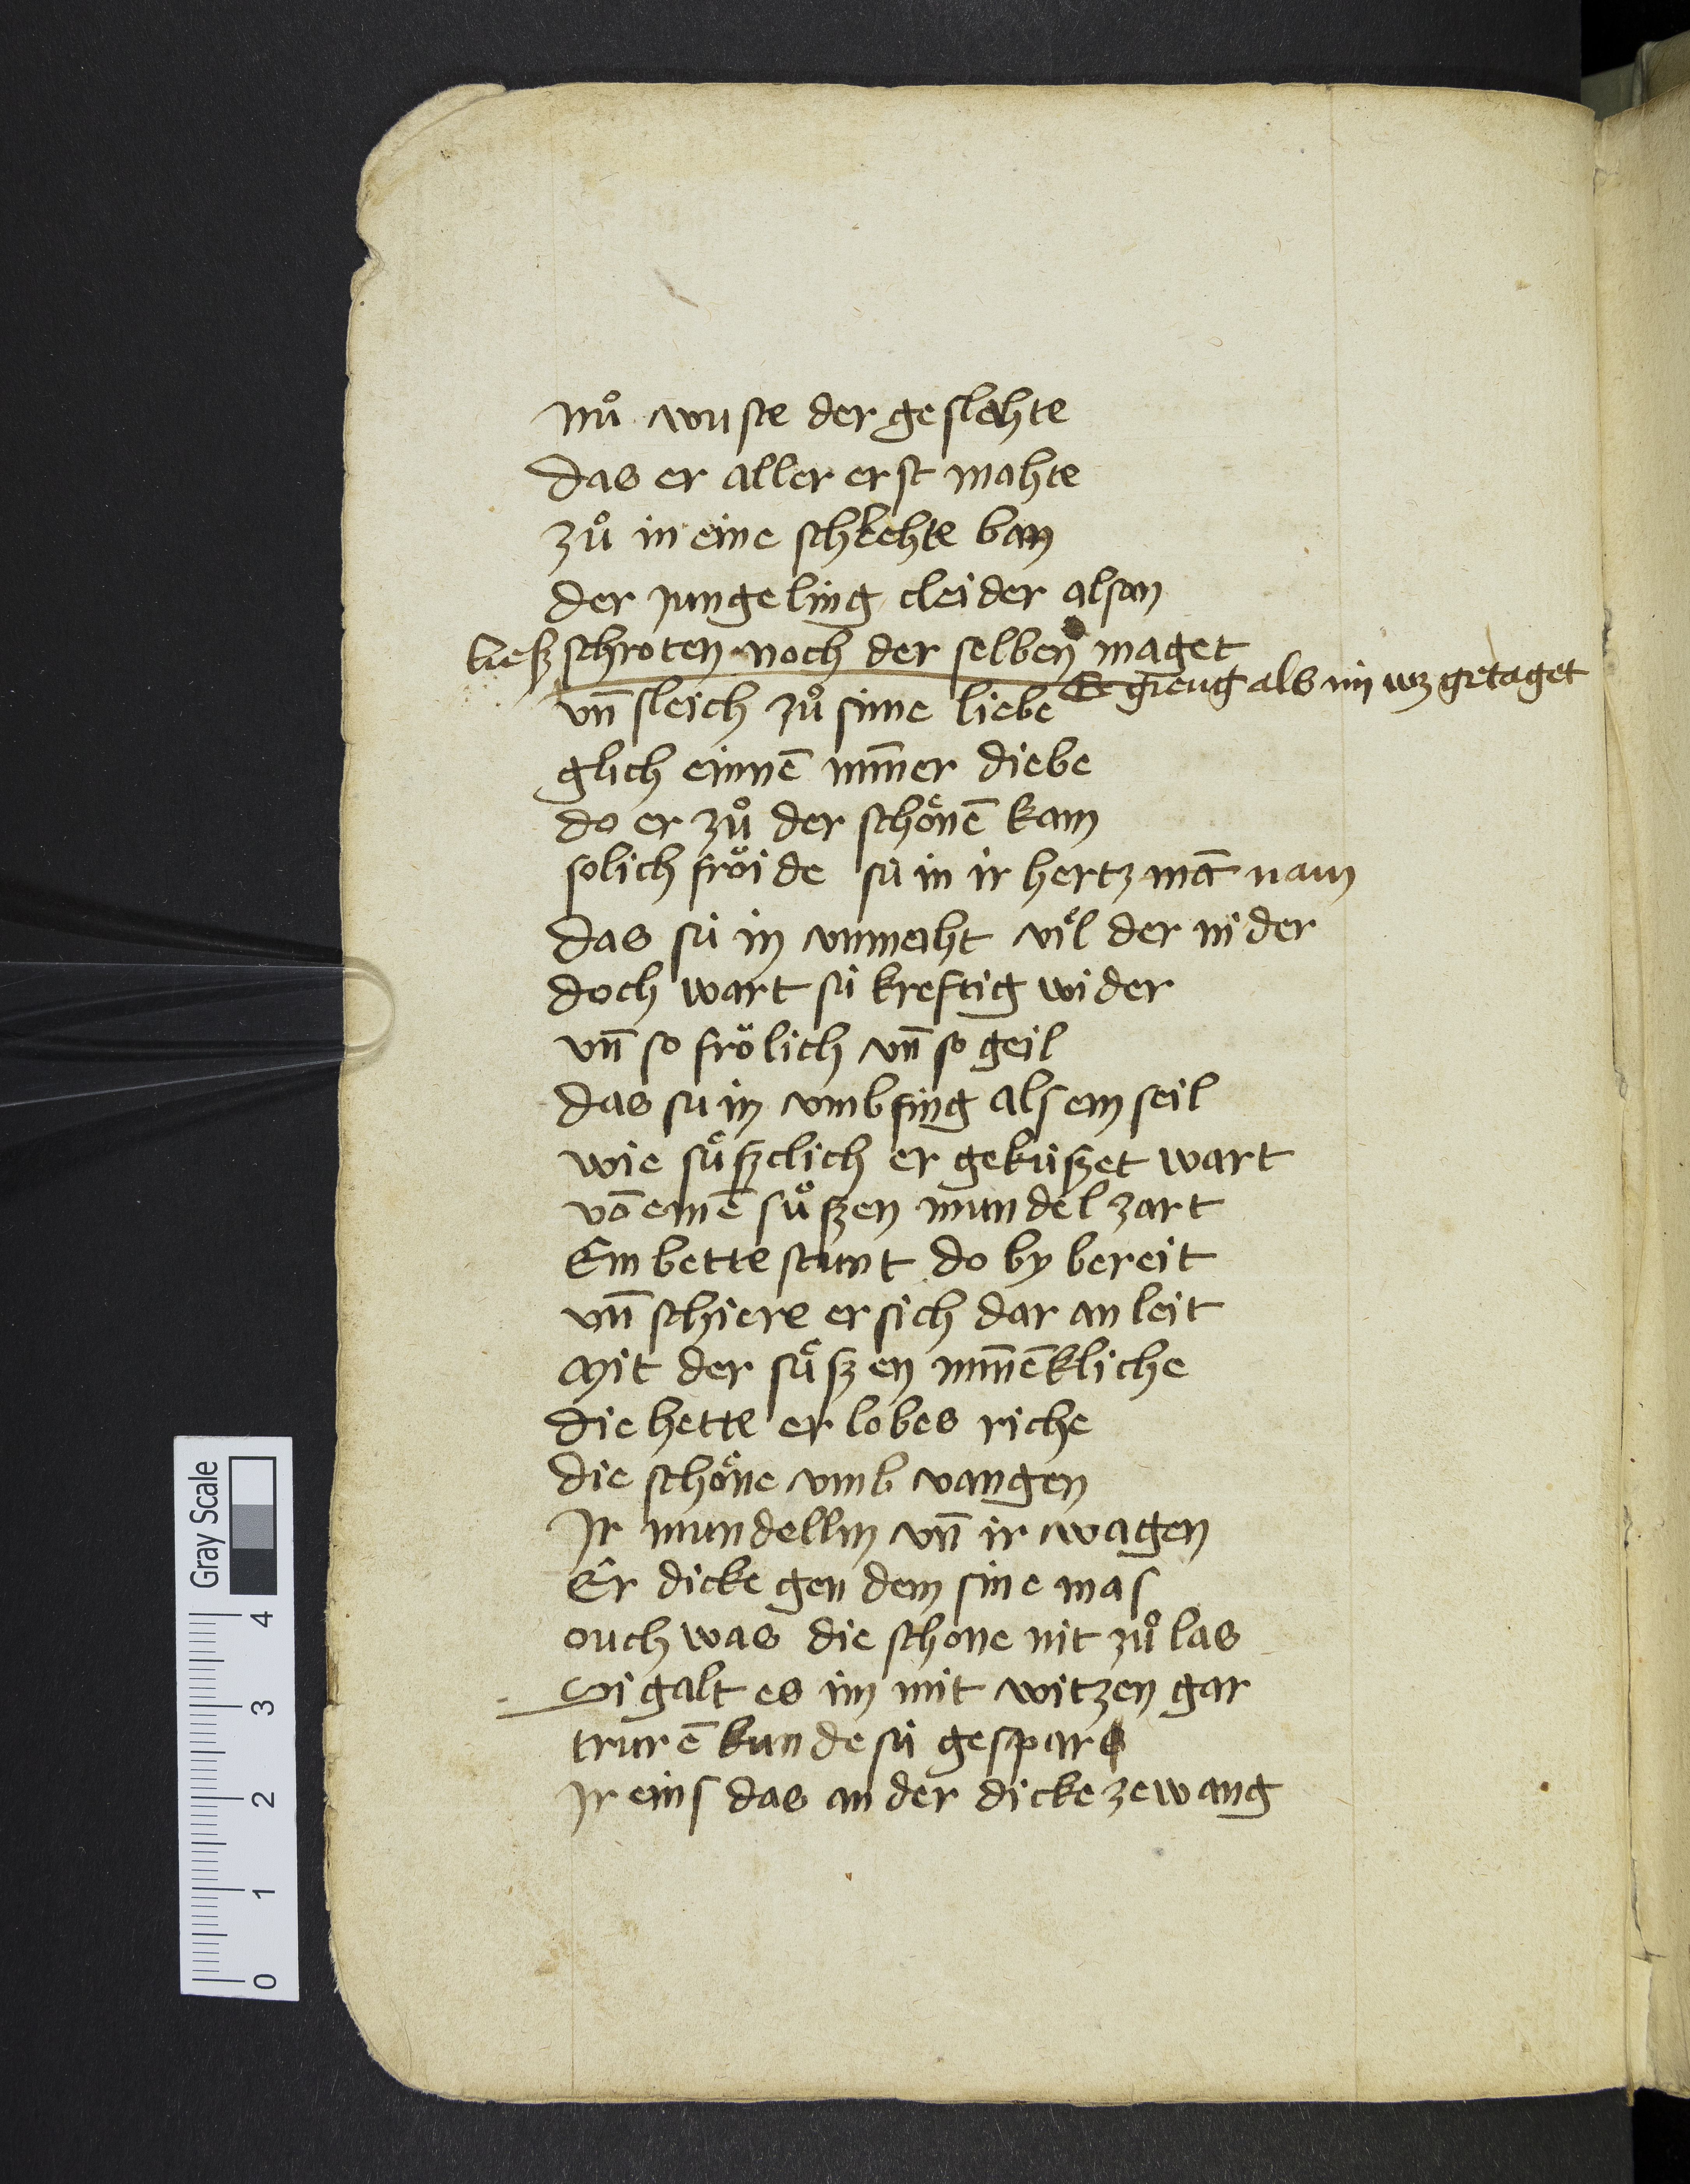 nuͦ wuste der geslehte
das er aller erst mahte
zuͦ in eine schlehte ban
der jungeling cleider alsan
ließ schroten noch der selben maget
Er gieng als im wz getaget
vn̄ sleich zuͦ sinne liebe
glich einnē min̄er diebe
do er zuͦ der schoͤnē kam
solich froͤide sú in ir hertz mā nam
das sú in vnmaht viͤl der nider
doch wart sú kreftig wider
vn̄ so froͤlich vn̄ so geil
das su in vmbfing als ein seil
wie suͤßclich er geküßet wart
vō einē suͦßen mundel zart
Ein bette stunt do by bereit
vn̄ schiere er sich dar an leit
Mit der suͤßen min̄ēkliche
die hette er lobes riche
die schoͤne vmb vangen
Ir mundellin vn̄ ir wagen
Er dicke gen dem sine mas
ouch was die schone nit zuͦ las
Si galt es im mit witzen gar
trurē kunde sú gespar
Ir eins das ander dicke zewang
Gray Scale
0 1 2 3 4